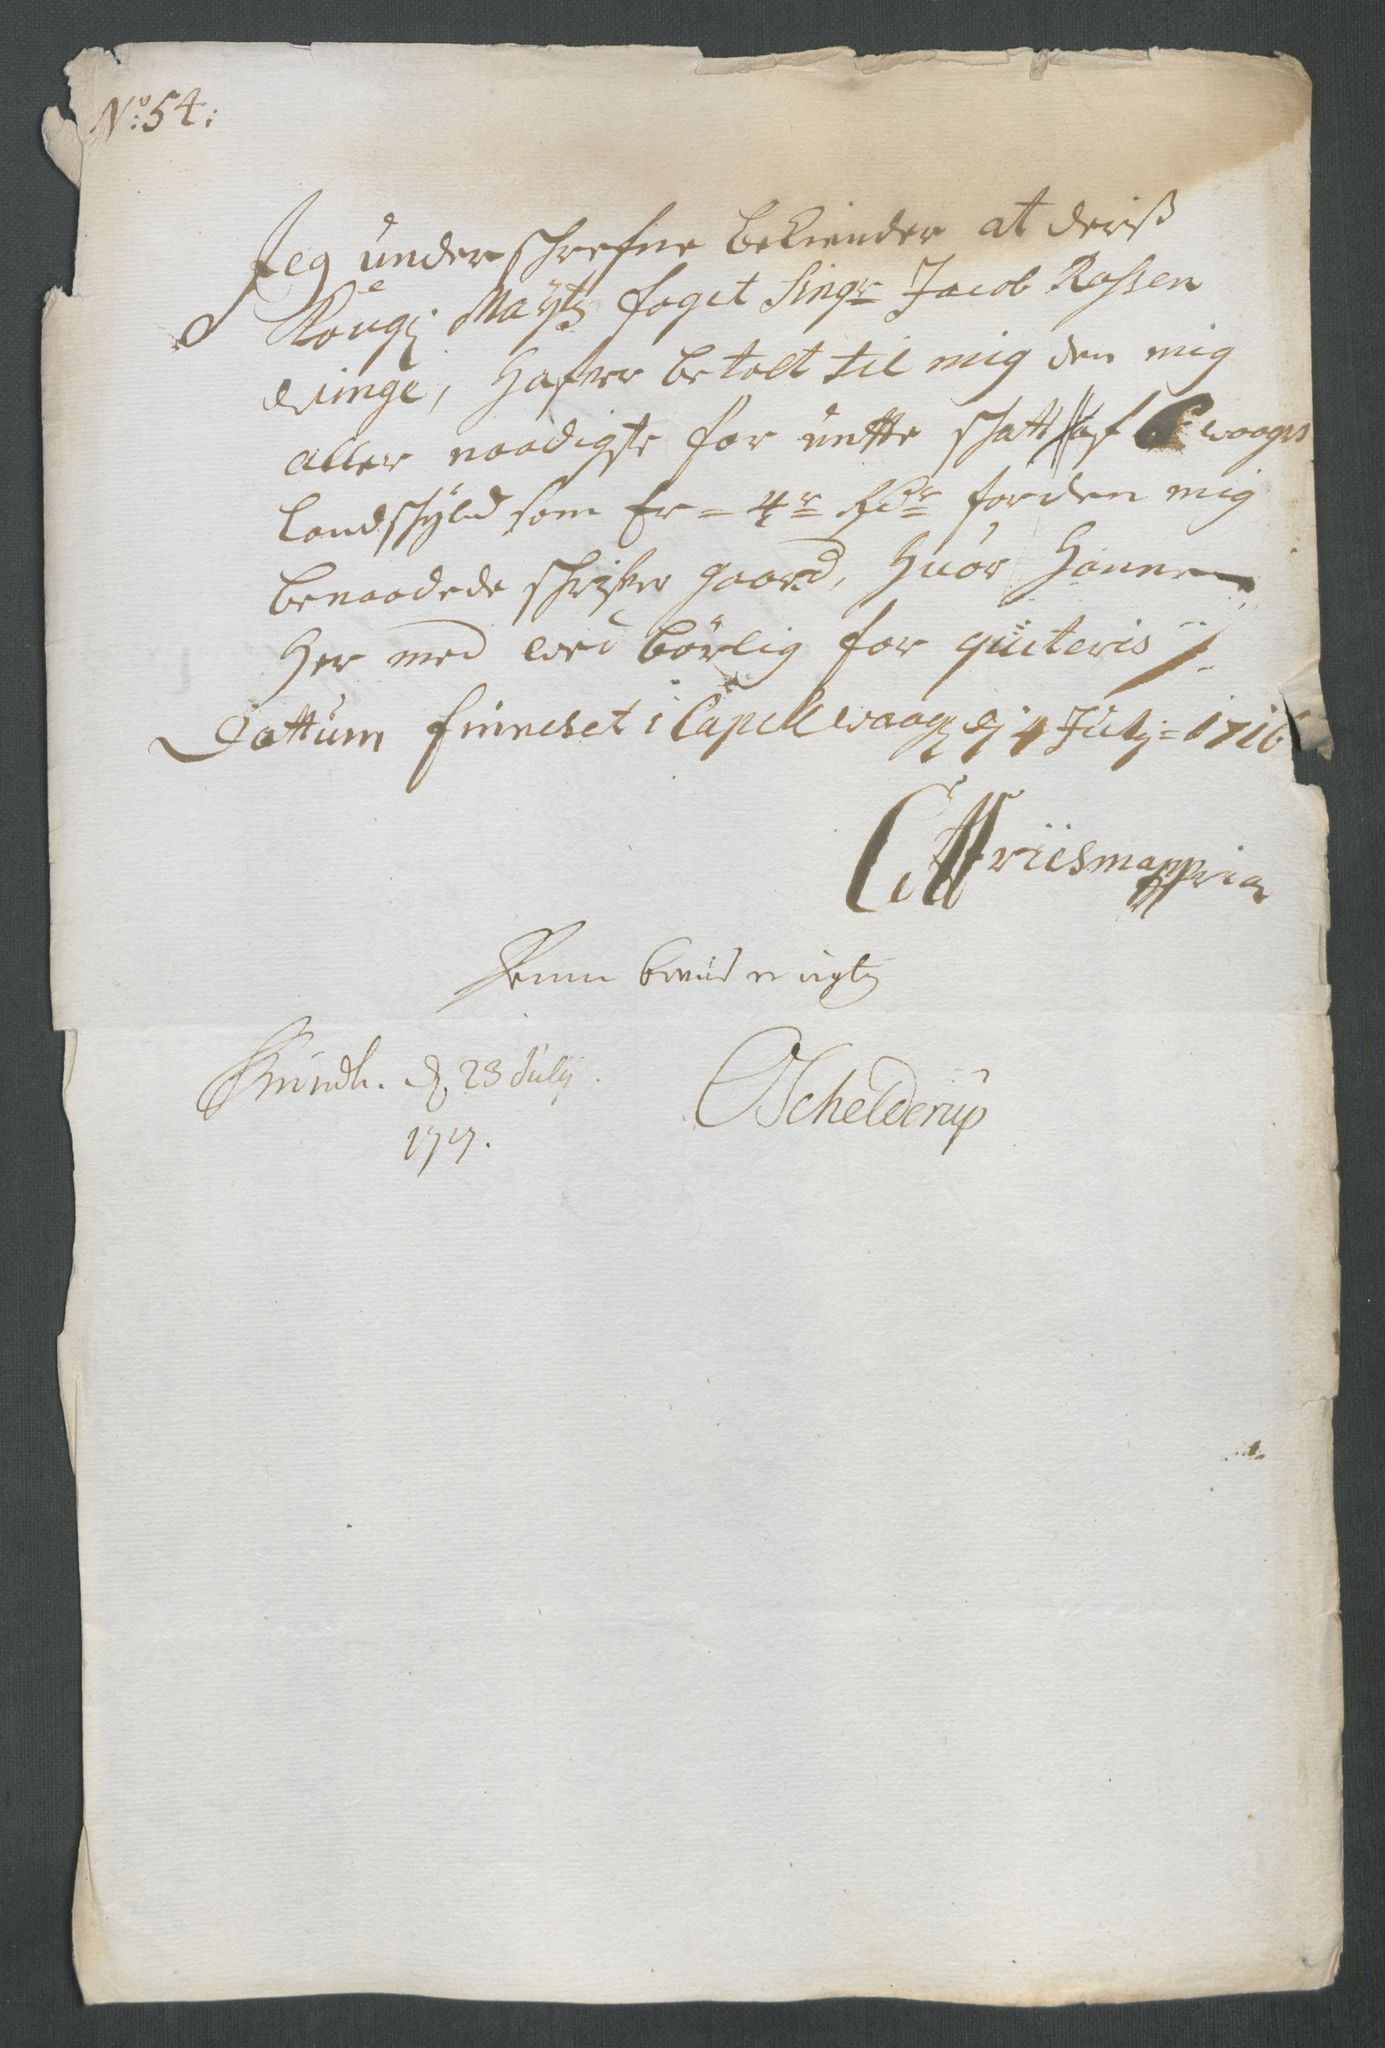 No: 54:
Jeg underschrefne bekiender at deriß
Kongl Maytz foget Singr Jacob Rossen
vinge, hafver betolt til mig den mig
aller naadigste for untte schatt af waagrs
landschyld som Er = 4r Rdr for den mig
benaadede schrifver gaard, huor hannem
her med ved börlig for quiteris
Dattum finneset i Capellwaag dj 4 July = 1716
Friismappria
Denne beviis er rigtig
Trundh. d. 23 July
1717.
OSchelderup